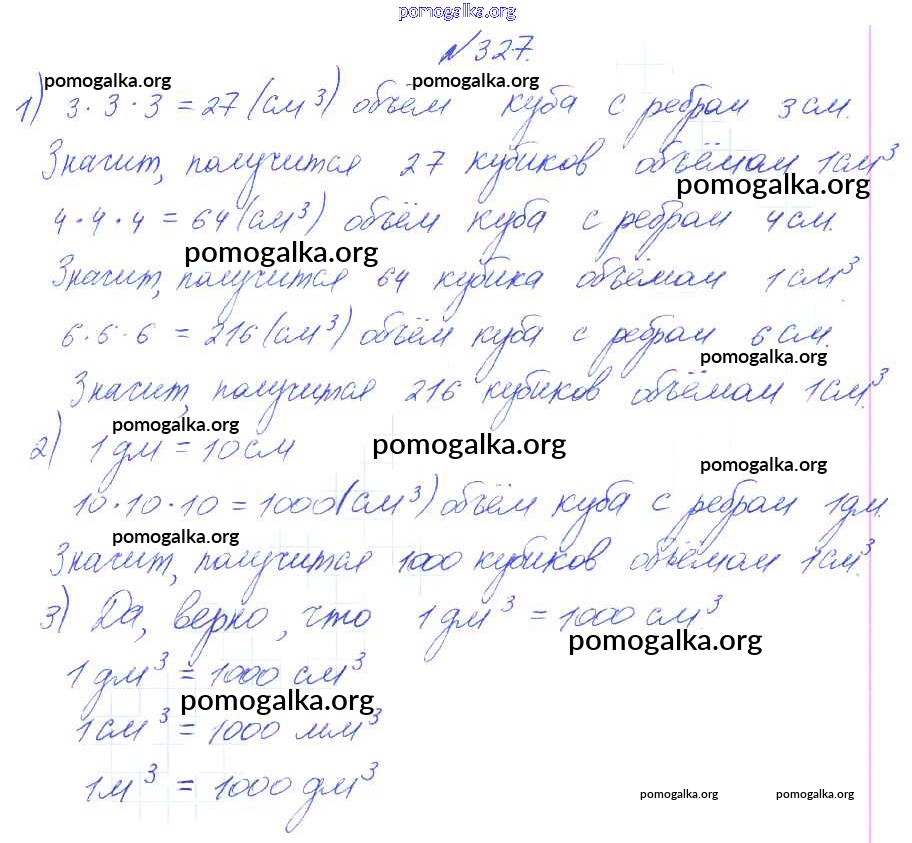 pomogalka.org
№327.
pomogalka.org pomogalka.org
1) 3·3·3 = 27 (см³) объём куба с ребром 3 см.
Значит, получится 27 кубиков объёмом 1 см³
pomogalka.org
4·4·4 = 64 (см³) объём куба с ребром 4 см.
pomogalka.org
Значит, получится 64 кубика объёмом 1 см³
6·6·6 = 216 (см³) объём куба с ребром 6 см.
pomogalka.org
Значит, получится 216 кубиков объёмом 1 см³.
pomogalka.org
2) 1 дм = 10 см
pomogalka.org
pomogalka.org
10·10·10 = 1000 (см³) объём куба с ребром 1 дм.
pomogalka.org
Значит, получится 1000 кубиков объёмом 1 см³.
3) Да, верно, что 1 дм³ = 1000 см³.
pomogalka.org
1 дм³ = 1000 см³
pomogalka.org
1 см³ = 1000 мм³
1 м³ = 1000 дм³
pomogalka.org pomogalka.org